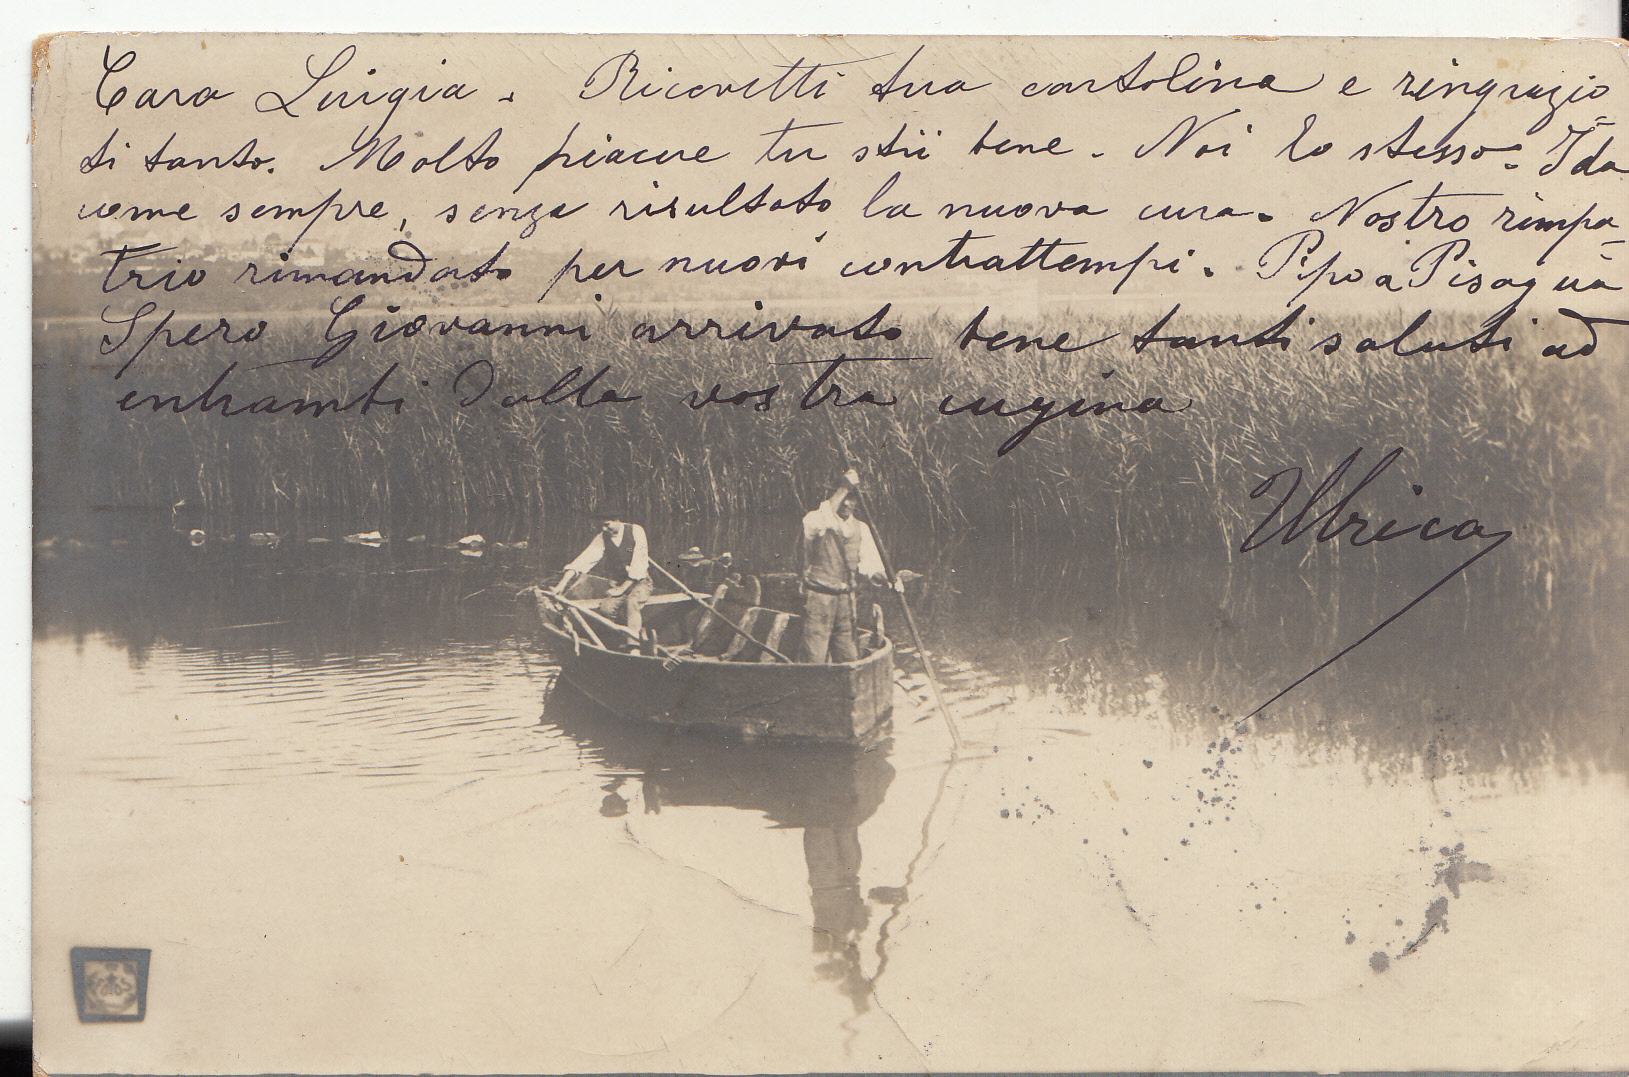 Cara Luigia. Ricevetti tua cartolina e ringrazio
ti tanto. Molto piacere tu stii bene. Noi lo stesso: Ida
come sempre, senza risultato la nuova cura. Nostro rimpa-
trio rimandato per nuovi contrattempi. Pipo a Pisagua
Spero Giovanni arrivato bene tanti saluti ad
entrambi dalla vostra cugina
Ulrica